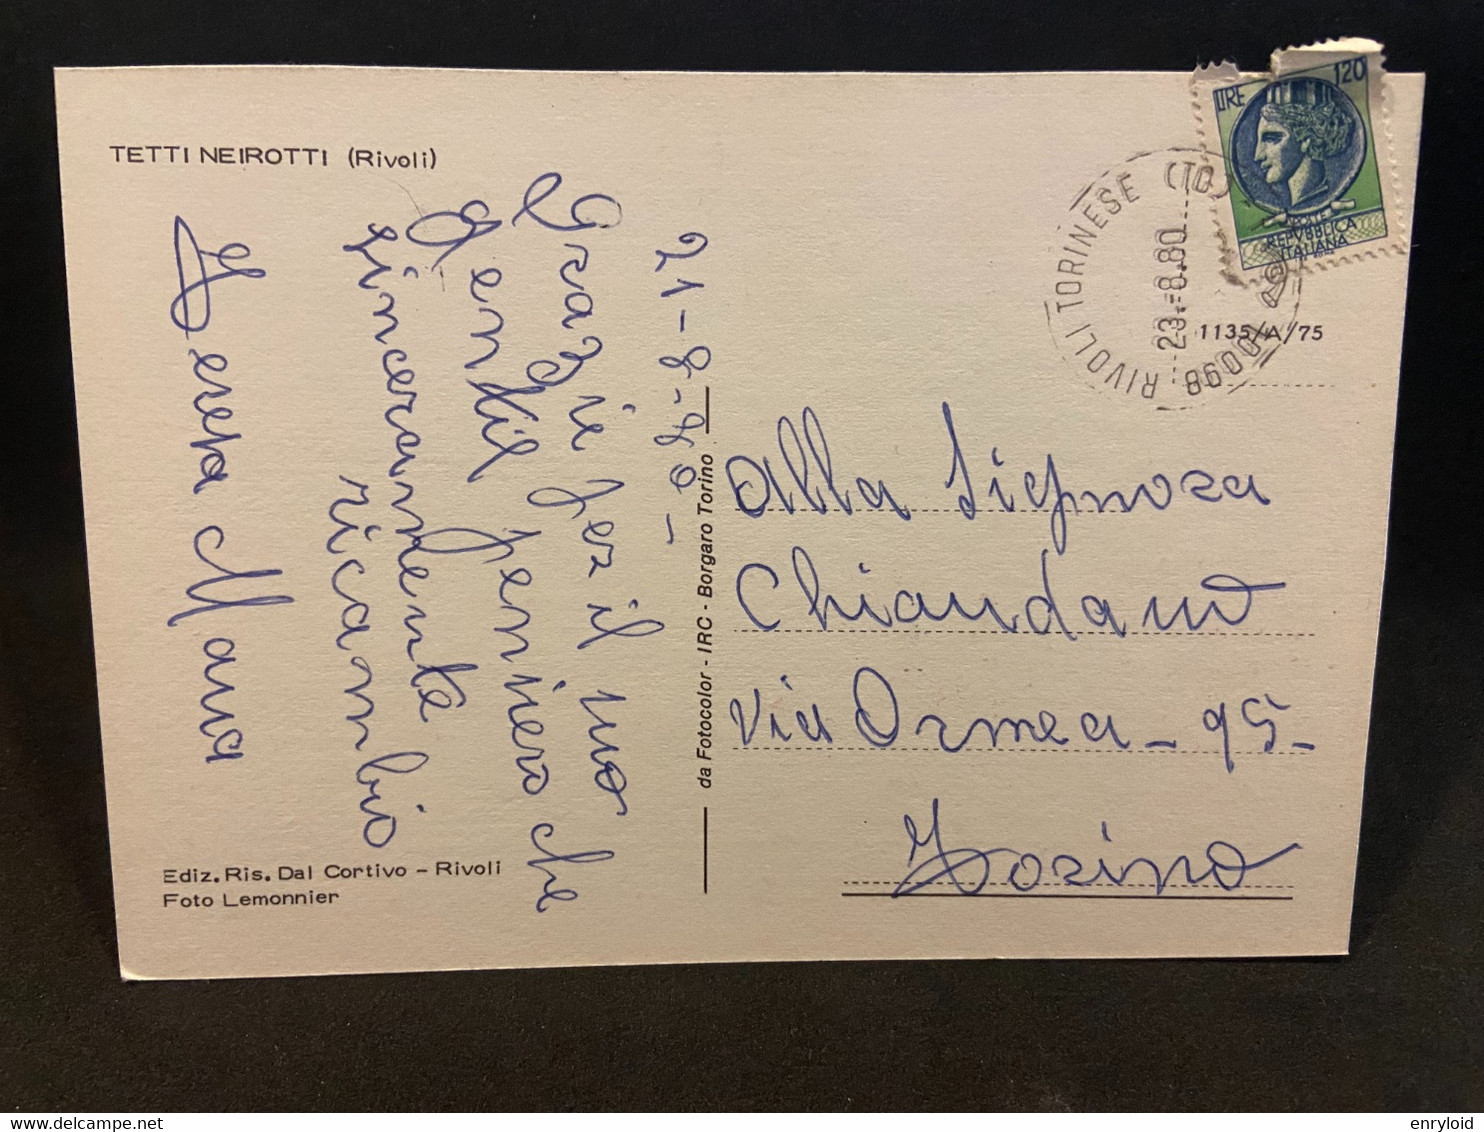 TETTI NEIROTTI (Rivoli)
21-8-80-
Grazie per il suo
gentil pensiero che
sinceramente
ricambio
Ediz. Ris. Dal Cortivo - Rivoli
Foto Lemonnier
da Fotocolor - IRC - Borgaro Torino
LIRE 120
POSTE
REPVBBLICA
ITALIANA
10098 RIVOLI TORINESE (TO)
23.-8.80
1135/A/75
Alla Signora
Chiandano
Via Ormea - 95-
Torino
enryloid